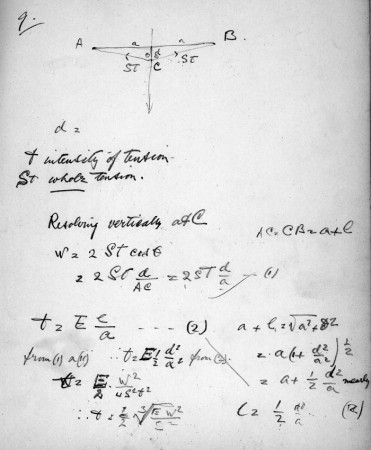 9.
A a a B.
θ d
ST C ST
d =
t intensity of tension
St whole tension.
Resolving vertically at C
AC = CB = a + l
W = 2 St cos θ
= 2 ST d/AC = 2ST d/a — (1)
t = E l/a ... (2)
a + l = √a²+d²
from (1) a(1) ∴ t = E ½ d²/a² from (2).
= a(1 + d²/a²)^½
t = E/2 W²/4S²t²
= a + ½ d²/a nearly
∴ t = ½ ∛E W²/S²
l = ½ d²/a (2)